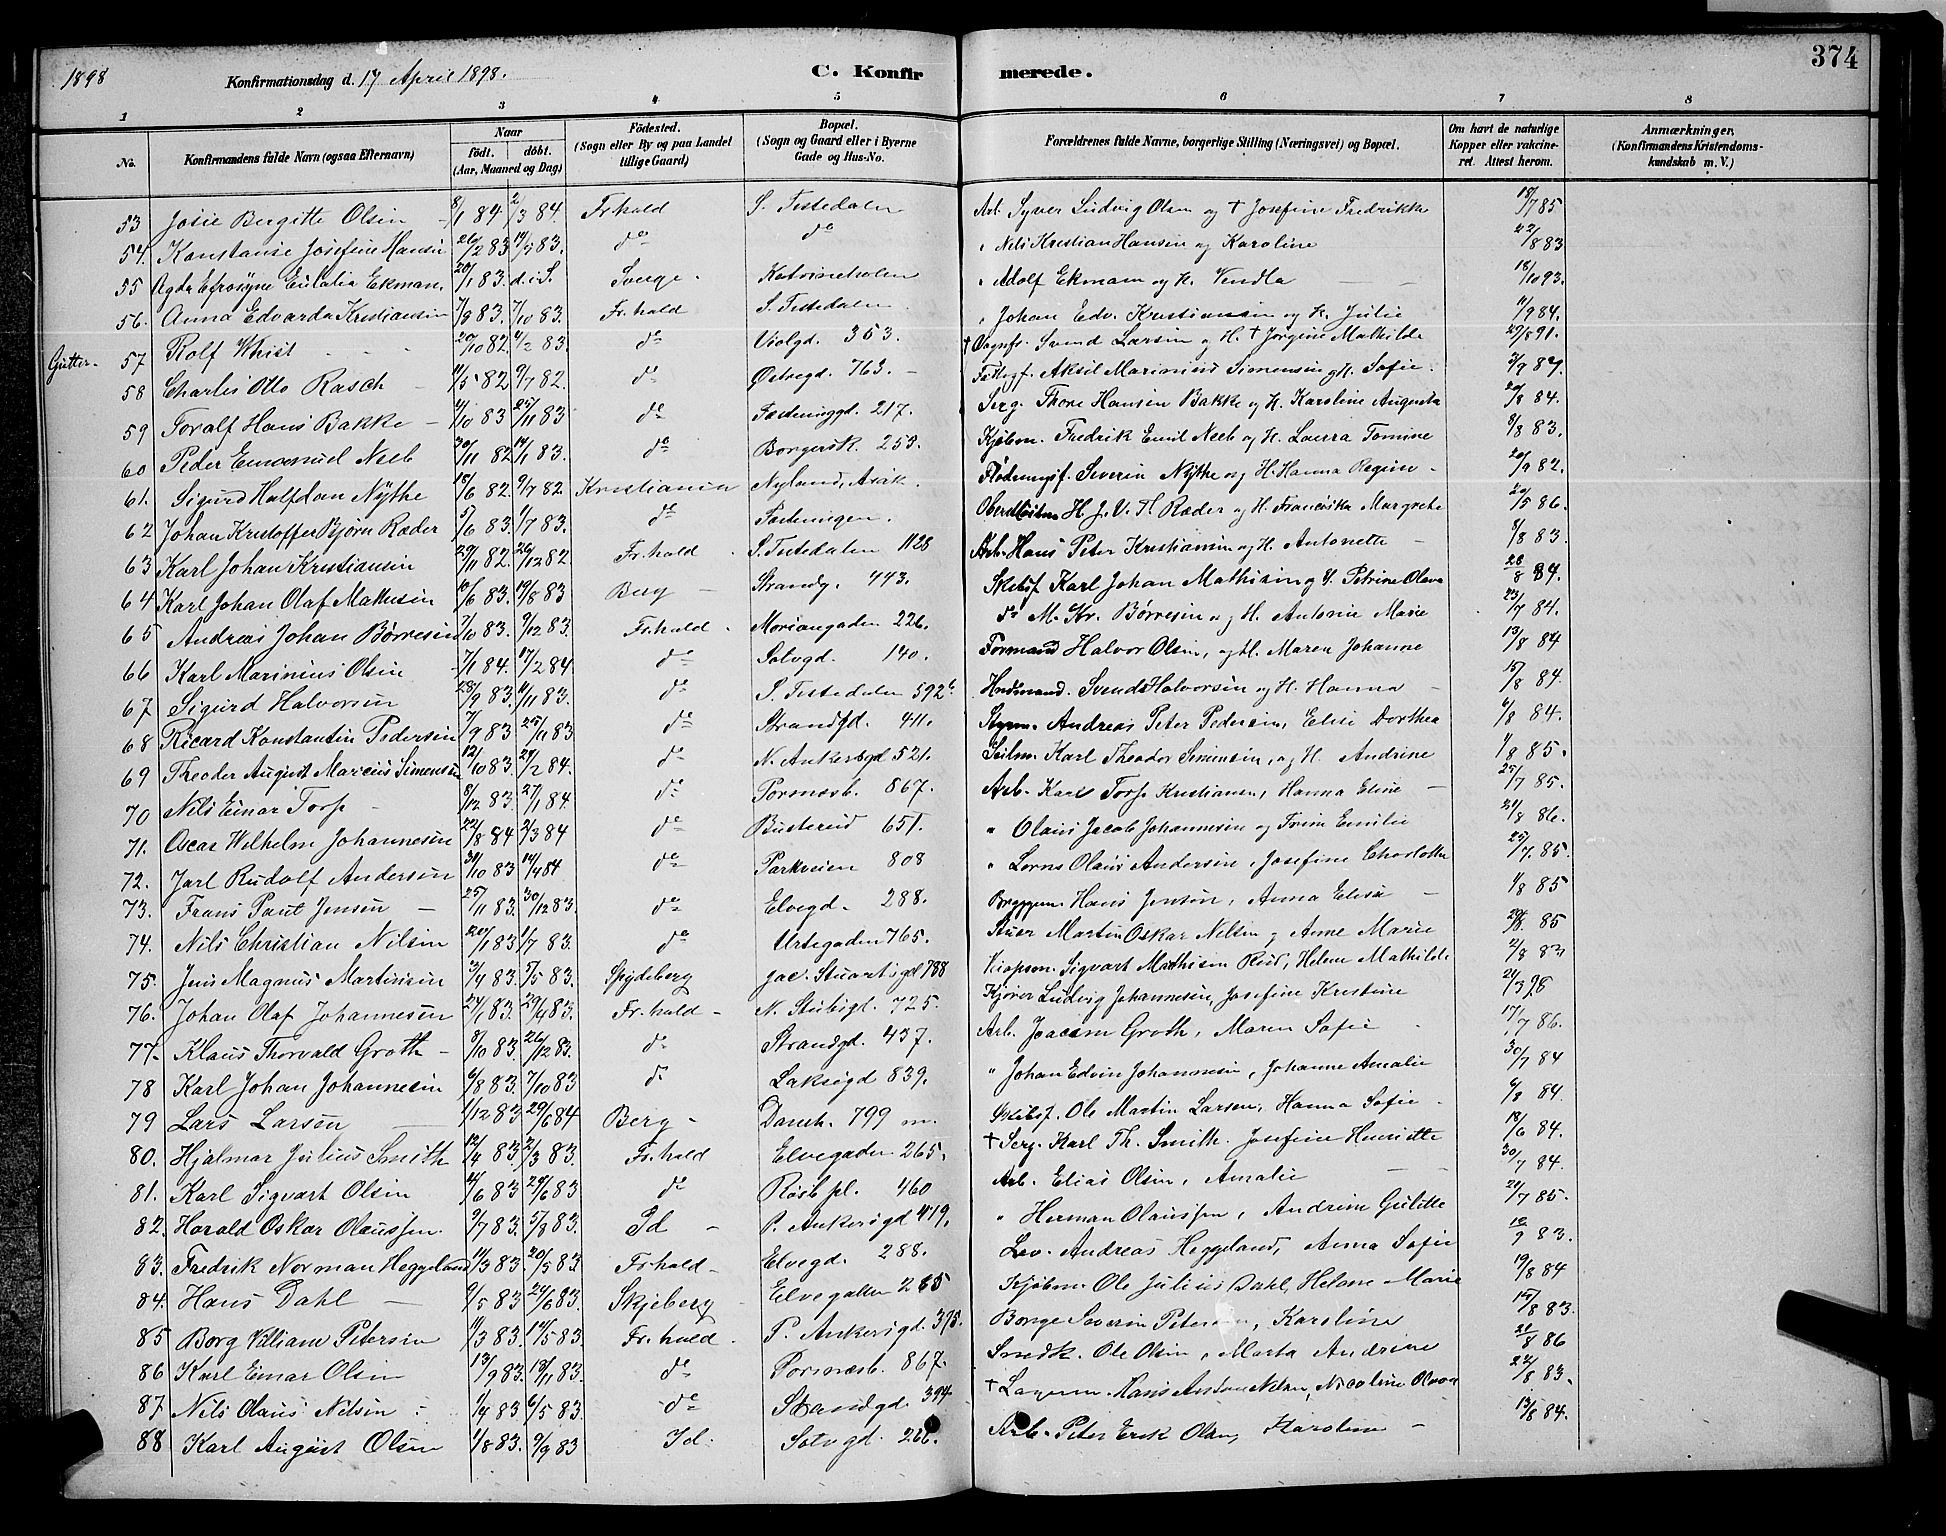 1898 Konfirmationsdag d. 17 April 1898. C. Konfirmerede. 374
1 2 3 4 5 6 7 8
No. Konfirmandens fulde Navn (ogsaa Efternavn) Naar födt. döbt. (Aar, Maaned og Dag) Födested. (Sogn eller By og paa Landet tillige Gaard) Bopæl. (Sogn og Gaard eller i Byerne Gade og Hus-No. Forældrenes fulde Navne, borgerlige Stilling (Næringsvei) og Bopæl. Om havt de naturlige Kopper eller vakcineret. Attest herom. Anmærkninger, (Konfirmandens Kristendomskundskab m. V.)
53 Josie Bergitte Olsen 8/1 84. 2/3 84. Fr.hald S. Tistedalen Arb. Syver Ludvig Olsen og † Josefine Fredrikke 18/7 85
54. Konstanse Josefine Hansen 26/2 83 do do " Nils Kristian Hansen og Karoline 22/8 83
55 Agda Efrosyne Eulalia Ekman. 20/1 83. d. i S. Sverge Katrineholm " Adolf Ekmam og H. Vendla 18/10 93.
56. Anna Edvarda Kristiansen 7/8 83. 7/10 83. Fr.hald S. Tistedalen " Johan Edv. Kristiansen og H. Julie 11/9 84.
Gutter. 57 Rolf Whist 20/10 82. 4/2 83. do Violgd. 353. † Svend Larsen og H. † Jorgine Mathilde 29/8 91.
58 Charles Otto Rasch 11/5 82 9/7 82. do Østregd. 763. Aksel Marinius Simensen og H. Sofie. 3/9 89.
59 Toralf Hans Bakke 11/10 83 25/11 83 do Fæstninggd. 217. Serg. Thore Hansen Bakke og H. Karoline Augusta 20/8 84.
60 Peder Emanuel Neeb 30/11 82 14/1 83. do Borgersk. 253. Kjøbm. Fredrik Emil Neeb og H. Laura Tomine 8/8 83.
61. Sigurd Halfdan Nythe 18/6 82. 9/7 82 Kristiania Nyland, Asak. Severin Nythe og H. Hanna Regine 20/9 82.
62 Johan Kristoffer Bjørn Ræder 5/6 83. 1/7 83. do Fæstningen. H. J. V. Th. Ræder og H. Franciska Margrete 20/5 86.
63 Karl Johan Kristiansen 29/11 82. 26/12 82 Fr.hald S. Tistedalen 1128 Arb. Hans Peter Kristiansen og H. Antonette 8/8 83.
64 Karl Johan Olaf Mathisen 10/6 83. 19/8 83 Berg Strandg. 443. Skibsf. Karl Johan Mathisen og H. Petrine Olava 28/8 84.
65 Andreas Johan Børresen 7/10 83. 9/12 83. Fr.hald Moriangaden 226. do M. Kr. Børresen og H. Antonie Marie 23/7 84.
66 Karl Marinius Olsen 7/1 84. 17/2 84 do Solvgd. 140. Formand Halvor Olsen, og H. Maren Johanne 13/8 84
67 Sigurd Halvorsen 23/9 83. 11/11 83. do S. Tistedalen 592b Svend Halvorsen og H. Hanna 15/8 84.
68 Ricard Konstantin Pedersen 7/9 83 25/11 83 do Strandgd. 411. Styrm. Andreas Peter Pedersen, Elise Dorthea 6/8 84.
69 Theodor August Marcus Simensen 12/10 83. 24/2 84. do N. Ankersgd 521. Seilm. Karl Theodor Simensen, og H. Andrine 1/8 85.
70 Nils Einar Torp 8/12 83. 27/1 84. do Porsnæsb. 867. Arb. Karl Torp Kristiansen, Hanna Eline 25/7 85.
71. Oscar Wilhelm Johannesen 22/8 84 2/3 84 do Busterud 651. " Olaus Jacob Johannesen og Trine Emilie 21/8 86.
72. Jarl Rudolf Andersen 31/10 83 14/4 84 do Parkveien 808 " Lorns Olaus Andersen, Josefine Charlotte 25/7. 85.
73. Frans Paul Jensen 25/11 83. 30/12 83. do Elvegd. 288. Hans Jensen, Anna Elisa 1/8 85
74. Nils Christian Nilsen 20/1 83 1/7 83. do Urtegaden 765. Martin Oskar Nilsen og Anne Marie 85
75. Jens Magnus Martinsen 3/4 83. 5/5 83. Spydeberg Jac. Stuartsgd 788 Sigvart Mathisen Rud, Helene Mathilde 2/8 83
76. Johan Olaf Johannesen 24/1 83. 29/4 83. Fr.hald N. Stubsgd. 725. Kjører Ludvig Johannesen, Josefine Kristine 21/3 98
77. Klaus Thorvald Groth 8/10 83. 26/12 83. do Strandgd. 437. Arb. Joacim Groth, Maren Sofie 17/7 86.
78 Karl Johan Johannesen 6/8 83. 7/10 83 do Laksegd 839. " Johan Edvin Johannesen, Johanne Amalie 30/7 84
79 Lars Larsen 1/12 83 29/6 84 Berg Damh. 799 m. Skibsf. Ole Martin Larsen, Hanna Sofie 6/8 84.
80. Hjalmar Julius Smith 12/4 83. 2/3 83. Fr.hald Elvegaden 265. † Serg. Karl Th. Smith. Josefine Henriette 18/6 84.
81. Karl Sigvart Olsen 4/6 83 24/6 83 do Røsb pl. 460 Arb. Elias Olsen, Amalie 30/7 84.
82. Harald Oskar Olaussen 9/7 83. 5/8 83. Id P. Ankersgd 419. " Herman Olaussen, Andrine Gulitte 24/7 85.
83. Fredrik Norman Heggeland 11/3 83. 20/5 83 Fr.hald Elvegd. 288. Andreas Heggeland, Anna Sofie 10/9 83.
84. Hans Dahl 9/5 83 24/6 83. Skjeberg Elvegaden 265 Kjøbm. Ole Julius Dahl, Helene Marie 19/8 84
85 Borg Villiam Petersen 11/3 83. 14/5 83 Fr.hald P. Ankersgd. 375. Borge Severin Petersen, Karoline 15/8 83.
86 Karl Einar Olsen 13/9 83. 18/11 83. do Porsnæsb. 867. Snedk. Ole Olsen, Marta Andrine 21/8 86
87. Nils Olaus Nilsen 1/4 83 6/5 83. do Strandgd. 394 † Hans Anton Nilsen, Nicoline Olava 22/8 83.
88 Karl August Olsen 1/8 83. 9/9 83 Id. Solvgd. 266. Arb. Peter Erik Olsen, Karoline 13/8 84.